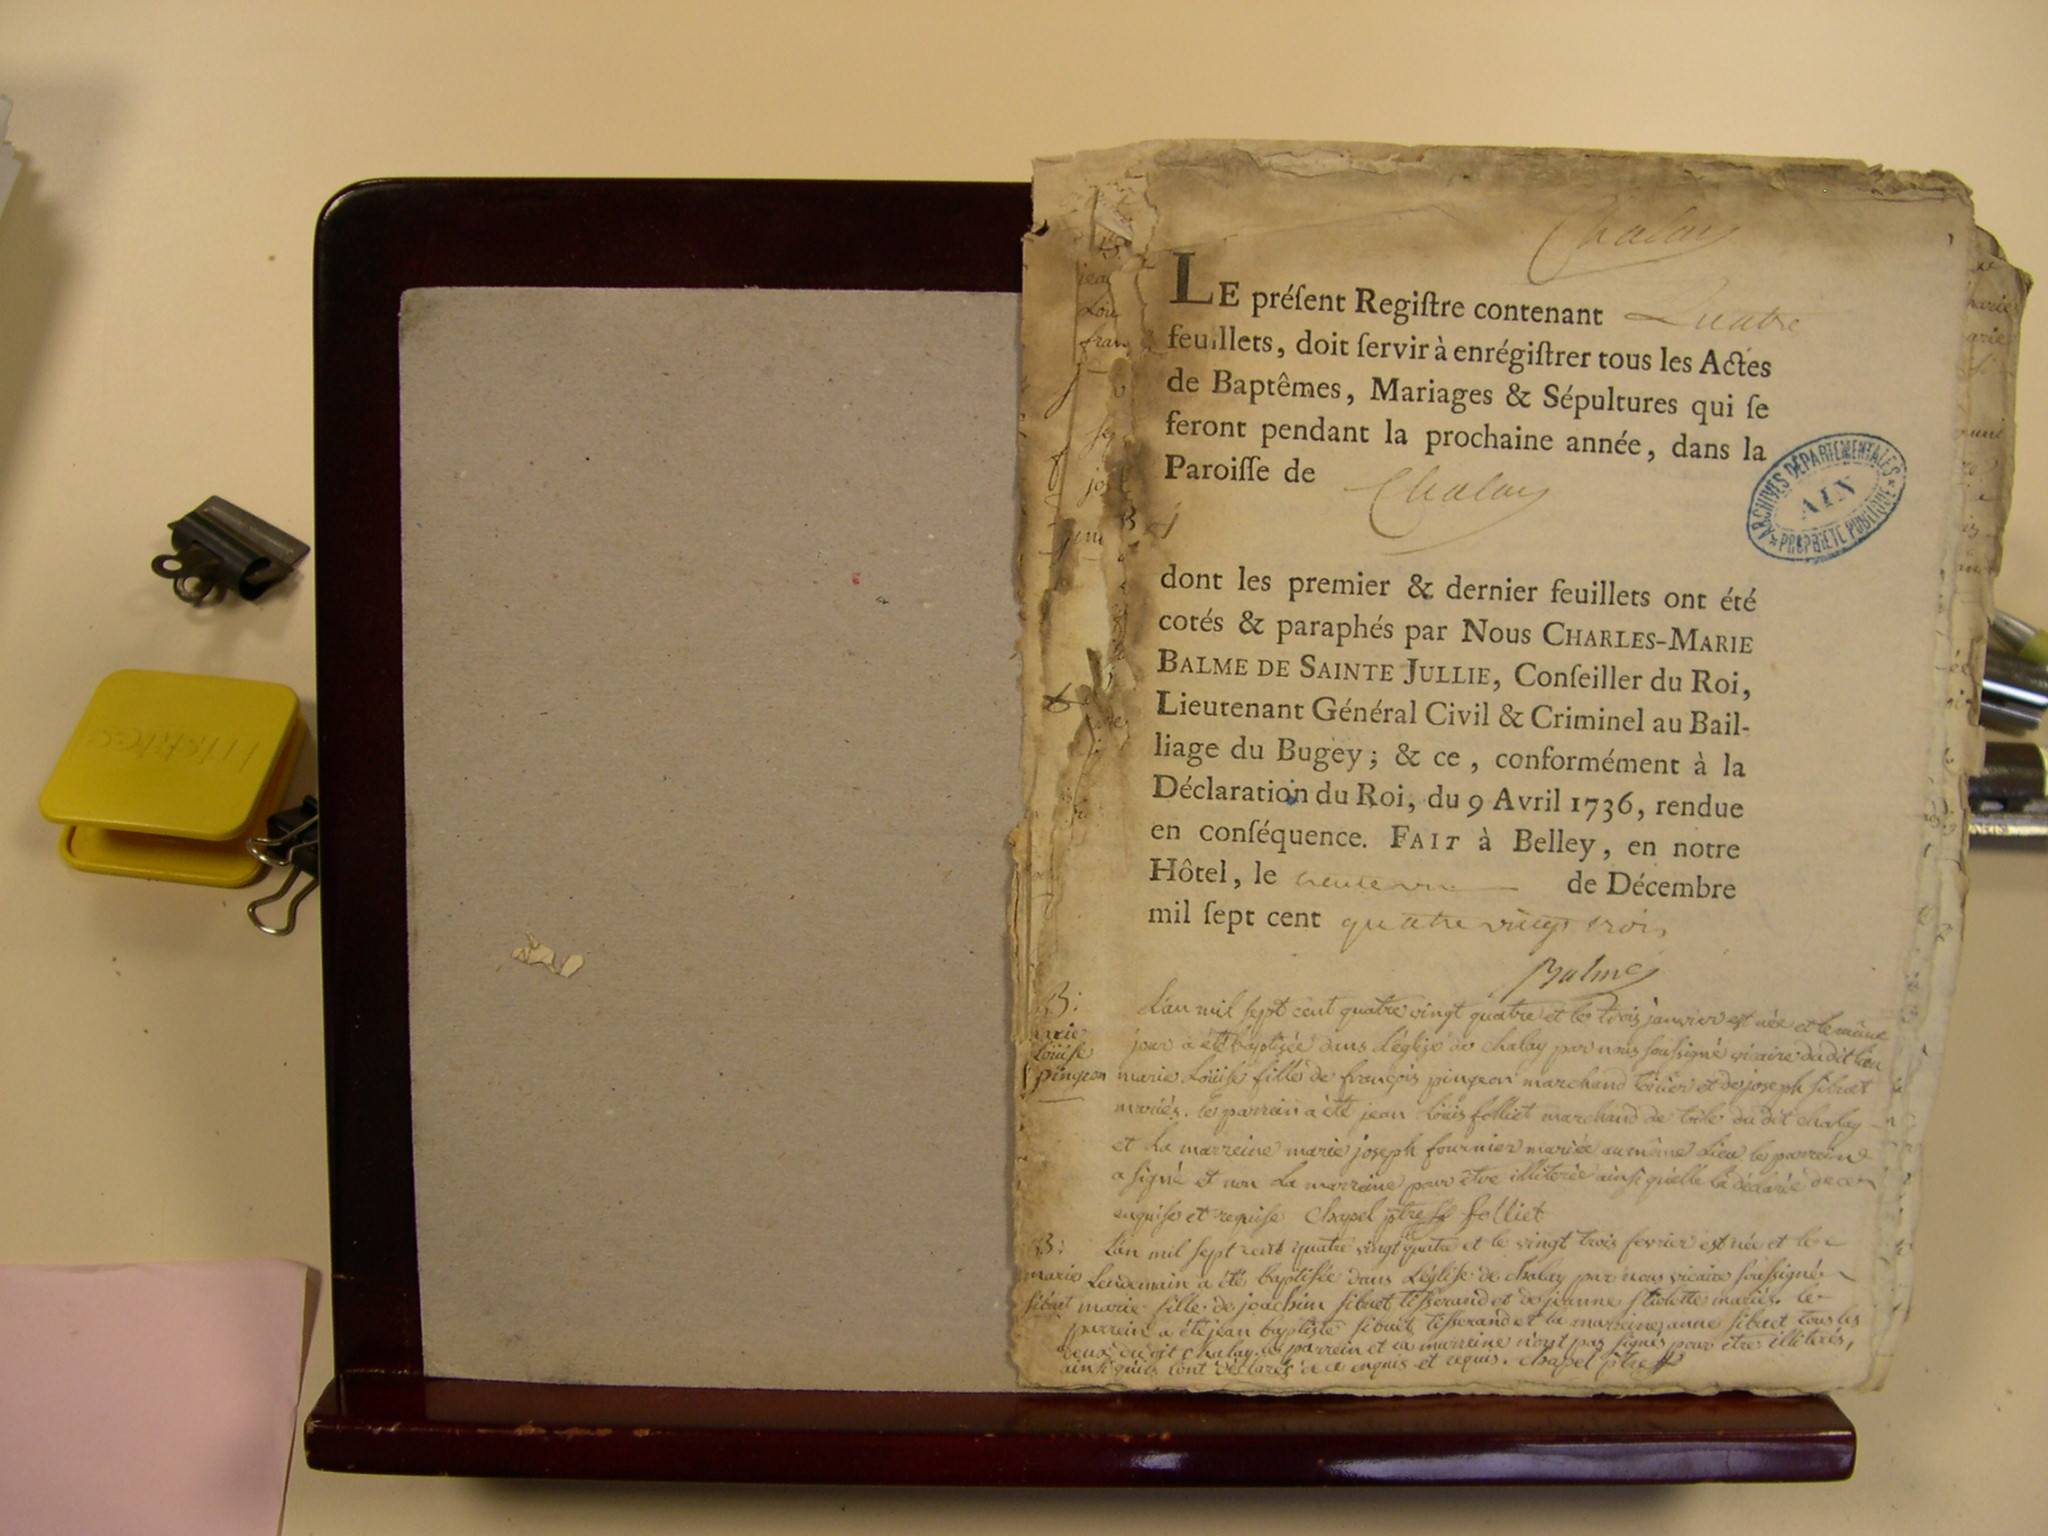 Chalay
LE préſent Regiſtre contenant Quatre
feuillets, doit ſervir à enrégiſtrer tous les Actes
de Baptêmes, Mariages & Sépultures qui ſe
feront pendant la prochaine année, dans la
Paroiſſe de Chalay
ARCHIVES DÉPARTEMENTALES
AIN
PROPRIÉTÉ PUBLIQUE
dont les premier & dernier feuillets ont été
cotés & paraphés par Nous CHARLES-MARIE
BALME DE SAINTE JULLIE, Conſeiller du Roi,
Lieutenant Général Civil & Criminel au Bail-
liage du Bugey ; & ce, conformément à la
Déclaration du Roi, du 9 Avril 1736, rendue
en conſéquence. FAIT à Belley, en notre
Hôtel, le trente un de Décembre
mil ſept cent quatre vingt trois
Balme
B: L'an mil sept cent quatre vingt quatre et le trois janvier est née et le même
marie jour a été baptisée dans L'église de chalay par nous soussigné vicaire du dit lieu
Loüise
pingeon marie Loüise fille de françois pingeon marchand et de joseph sibuet
mariés. le parrein a été jean Loüis folliet marchand de toile du dit chalay
et La marreine marie joseph fournier mariée au même Lieu le parrein
a signé et non La marreine pour être illiterée ainsi qu'elle l'a déclarée de ce
enquise et requise chapel ptre folliet
B: L'an mil sept cent quatre vingt quatre et le vingt trois fevrier est née et le
marie Lendemain a été baptisée dans L'église de chalay par nous vicaire soussigné
sibuet marie fille de joachim sibuet tisserand et de jeanne mariés. le
parrein a été jean baptiste sibuet tisserand et la marreine anne sibuet tous les
deux du dit chalay. le parrein et la marreine n'ont pas signés pour être illiterés,
ainsi qu'ils l'ont déclarés de ce enquis et requis. chapel ptre